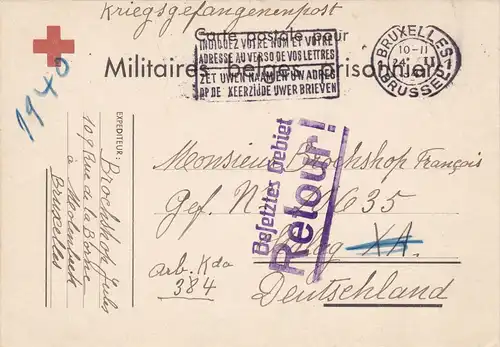 Kriegsgefangenenpost
Carte postale pour
Militaires belges prisonniers
INDIQUEZ VOTRE NOM ET VOTRE
ADRESSE AU VERSO DE VOS LETTRES
ZET UWEN NAAM EN UW ADRES
OP DE KEERZIJDE UWER BRIEVEN
BRUXELLES 1
10-11
24 II
1 BRUSSEL
1940
EXPEDITEUR:
Brochshop Jules
109 Rue de la Borne
à Molenbeek
Bruxelles
Monsieur Brochshop François
Gef. No 635
XA.
arb. Kdo
384
Deutschland
Besetztes Gebiet
Retour!